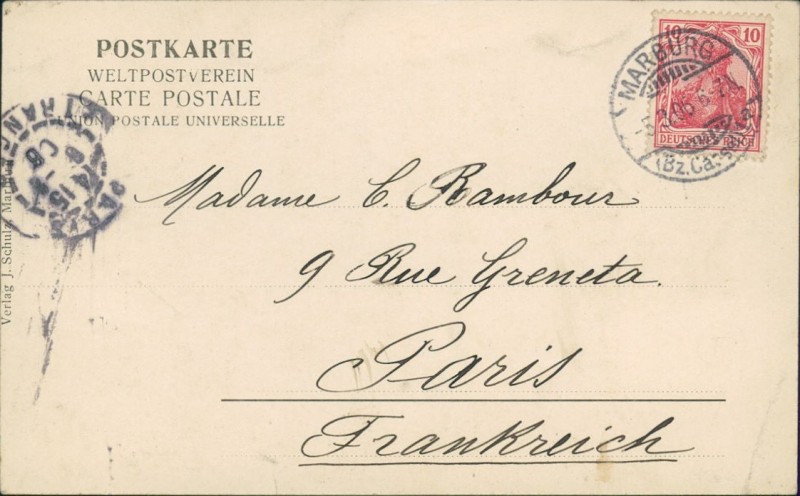 POSTKARTE
WELTPOSTVEREIN
CARTE POSTALE
UNION POSTALE UNIVERSELLE
10 10
DEUTSCHES REICH
MARBURG
(Bz. Cassel)
PARIS
ETRANGER
Verlag J. Schulz, Marburg
Madame C. Rambour
9 Rue Greneta.
Paris
Frankreich